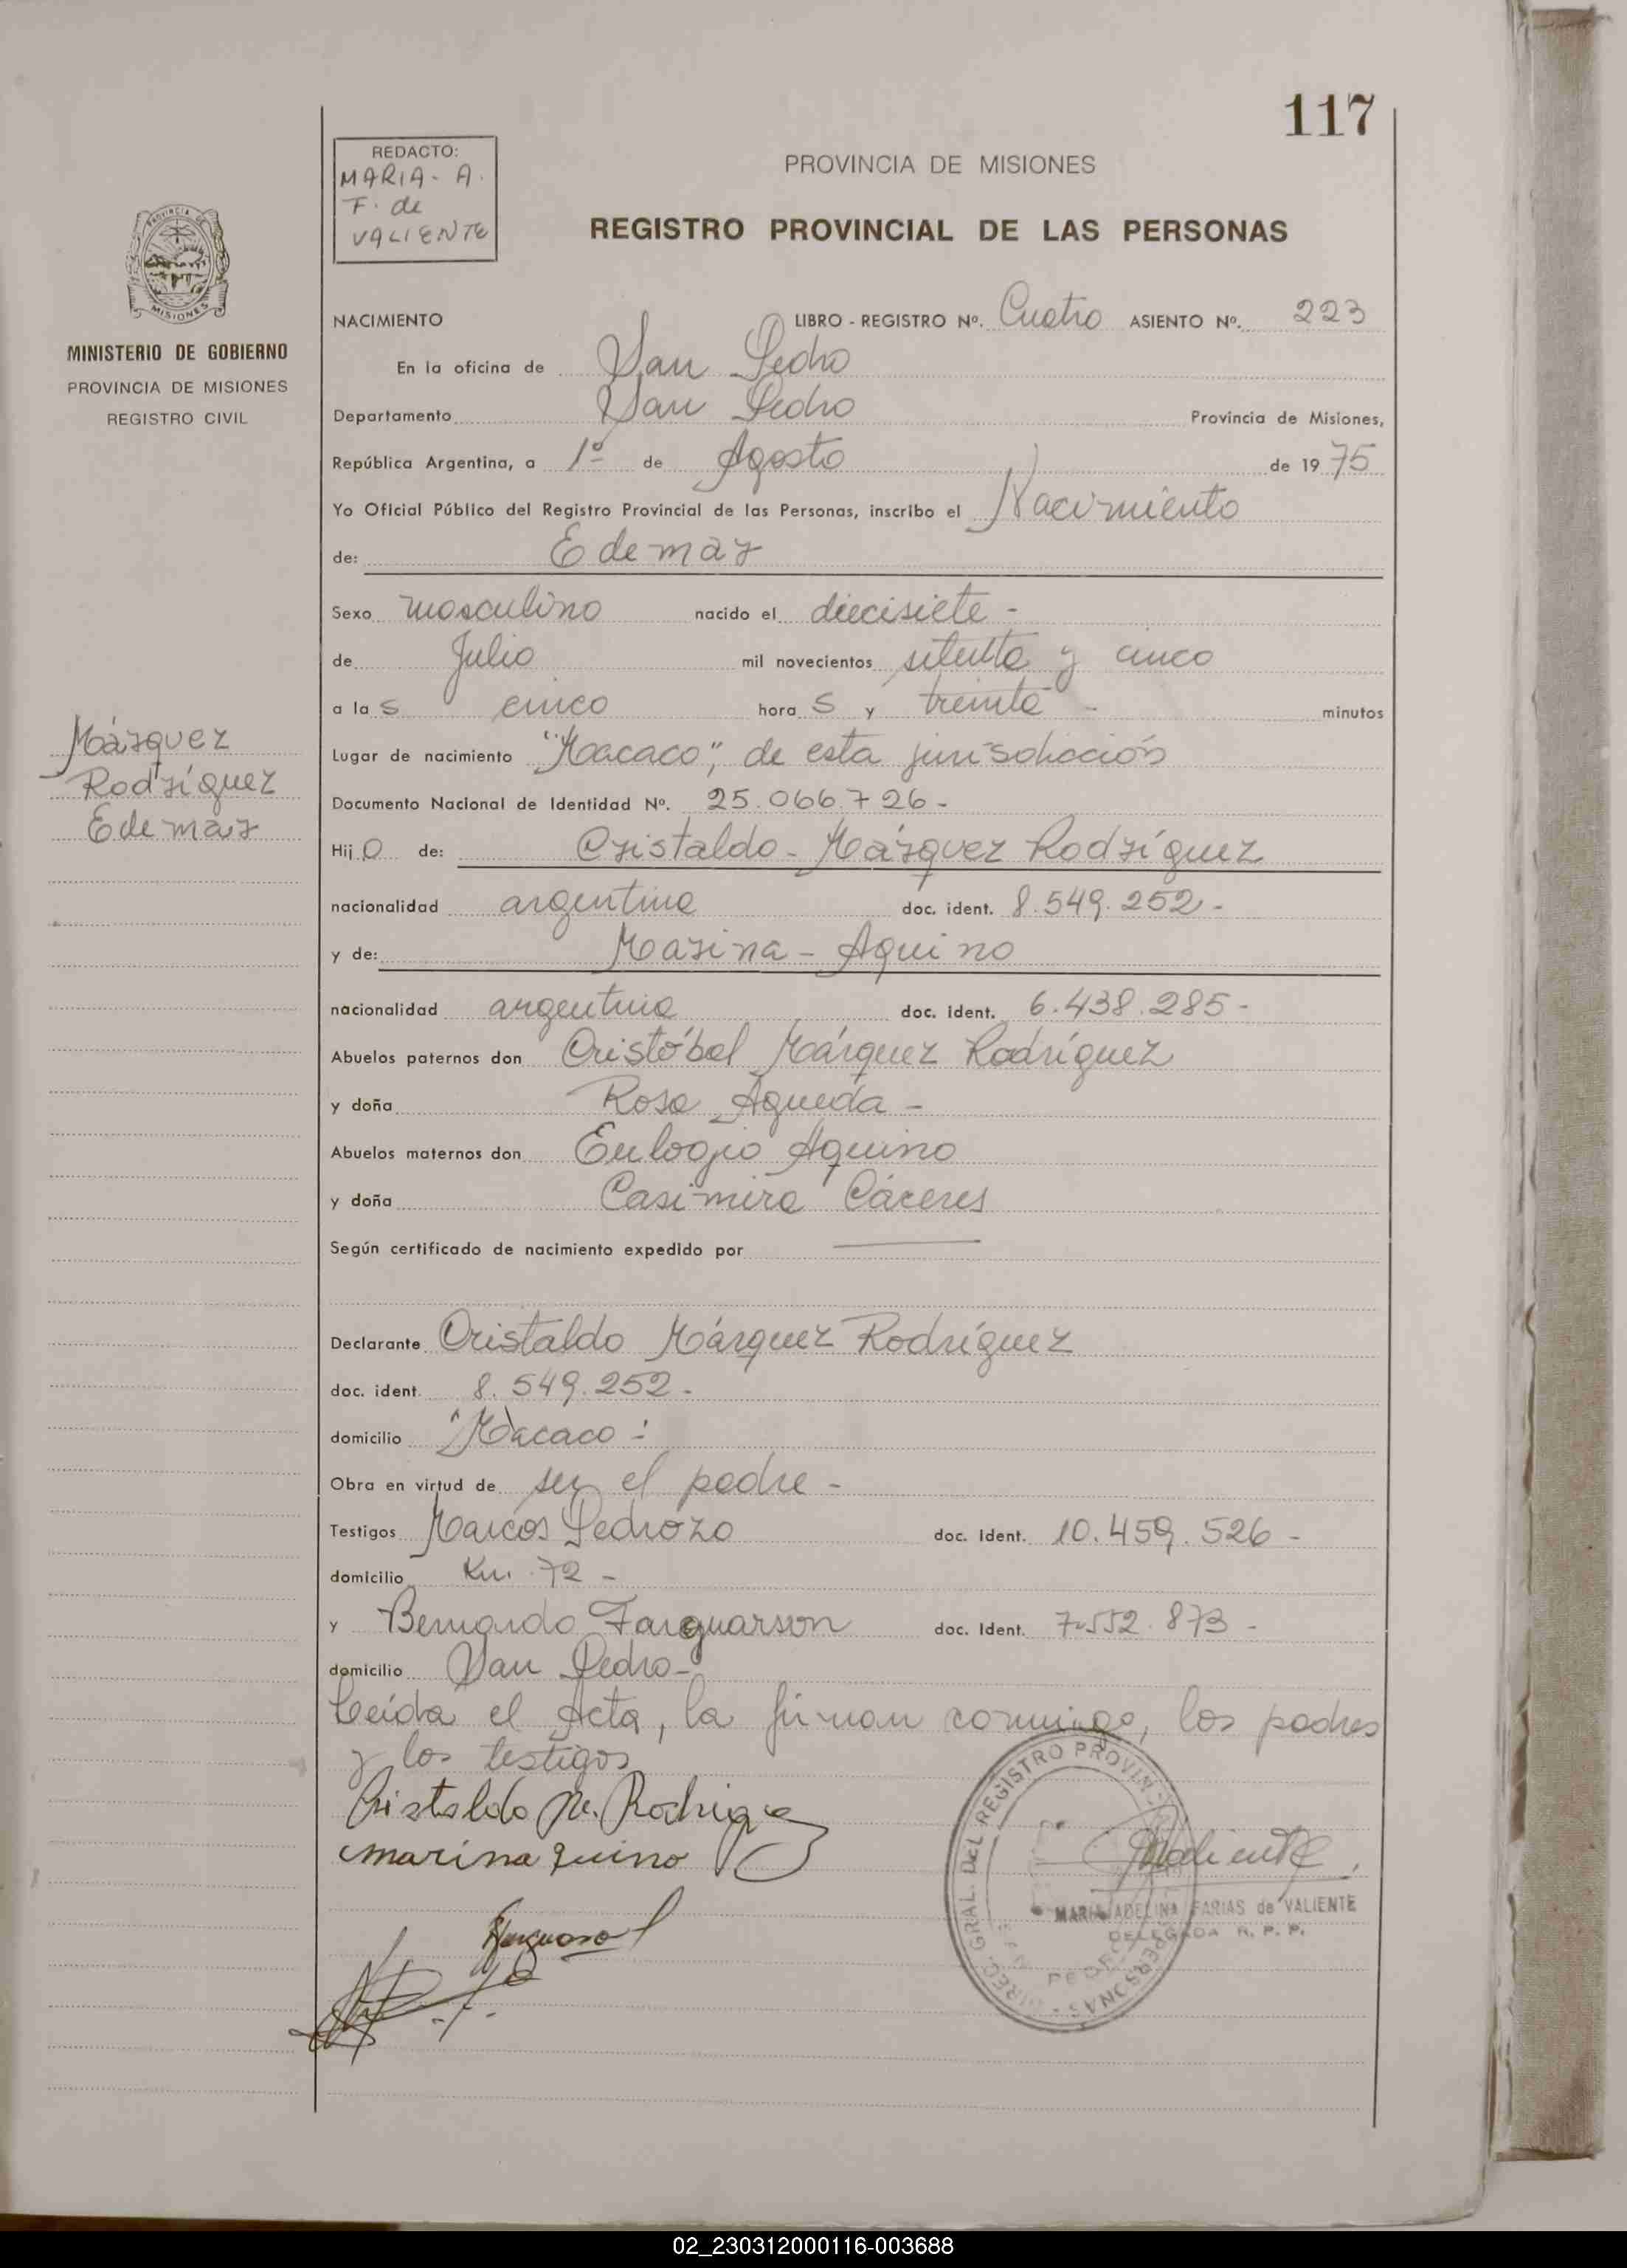 117
REDACTO:
MARIA - A.
F. de
VALIENTE
PROVINCIA DE MISIONES
REGISTRO PROVINCIAL DE LAS PERSONAS
PROVINCIA DE
MISIONES
MINISTERIO DE GOBIERNO
PROVINCIA DE MISIONES
REGISTRO CIVIL
NACIMIENTO LIBRO - REGISTRO Nº. Cuatro ASIENTO Nº. 223
En la oficina de San Pedro
Departamento San Pedro Provincia de Misiones,
República Argentina, a 1º de Agosto de 1975
Yo Oficial Público del Registro Provincial de las Personas, inscribo el Nacimiento
de: Edemar
Sexo masculino nacido el diecisiete -
de Julio mil novecientos setenta y cinco
a las cinco horas y treinta - minutos
Márquez
Rodríguez
Edemar
Lugar de nacimiento "Macaco", de esta jurisdicción
Documento Nacional de Identidad Nº. 25.066.726 -
Hijo de: Cristaldo - Márquez Rodríguez
nacionalidad argentina doc. ident. 8.549.252 -
y de: Marina - Aquino
nacionalidad argentina doc. ident. 6.438.285 -
Abuelos paternos don Cristóbal Márquez Rodríguez
y doña Rosa Agueda -
Abuelos maternos don Eulogio Aquino
y doña Casimira Cáceres
Según certificado de nacimiento expedido por
Declarante Cristaldo Márquez Rodríguez
doc. ident. 8.549.252 -
domicilio "Macaco"
Obra en virtud de ser el padre -
Testigos Marcos Pedrozo doc. Ident. 10.459.526 -
domicilio Km. 72 -
y Bernardo Farquarson doc. Ident. 7.552.873 -
domicilio San Pedro -
Leída el Acta, la firman conmigo, los padres
y los testigos
Cristaldo M. Rodrigue
marina quino
DIREC. GRAL. DEL REGISTRO PROVIN. PERSONAS
PEDRO
Valiente
MARIA ADELINA FARIAS de VALIENTE
DELEGADA R. P. P.
02_230312000116-003688